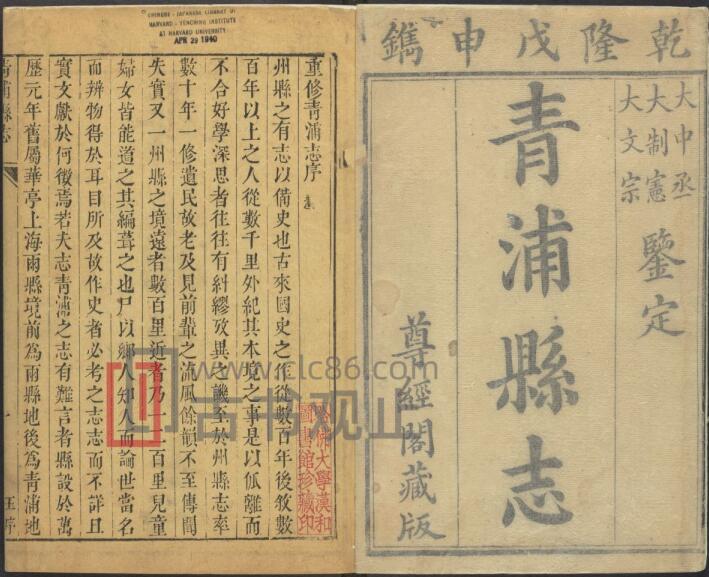 乾隆戊申鐫
大中丞
大制憲
大文宗
鑒定
青浦縣志
尊經閣藏版
CHINESE-JAPANESE LIBRARY OF
HARVARD-YENCHING INSTITUTE
AT HARVARD UNIVERSITY
APR 29 1940
重修青浦志序
州縣之有志以備史也古來國史之作從數百年後敘數
百年以上之人從數千里外紀其本境之事是以佹離而
不合好學深思者往往有糾繆攷異之譏至於州縣志率
數十年一修遺民故老及見前輩之流風餘韻不至傳聞
失實又一州縣之境遠者數百里近者乃一二百里兒童
婦女皆能道之其編葺之也尸以鄉人知人而論世當名
而辨物得於耳目所及故作史者必考之志志而不詳且
實文獻於何徵焉若夫志青浦之志有難言者縣設於萬
歷元年舊屬華亭上海兩縣境前為兩縣地後為青浦地
青浦縣志
一
王序
哈佛大學漢和
圖書館珍藏印
www.clc86.com
古书观止